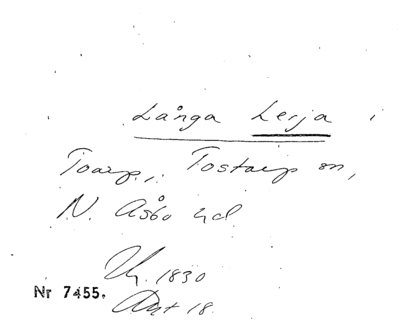 Långa Lerja i
Toarp, Tostarp sn,
N. Åsbo hd
1830
Nr 7455.
18.